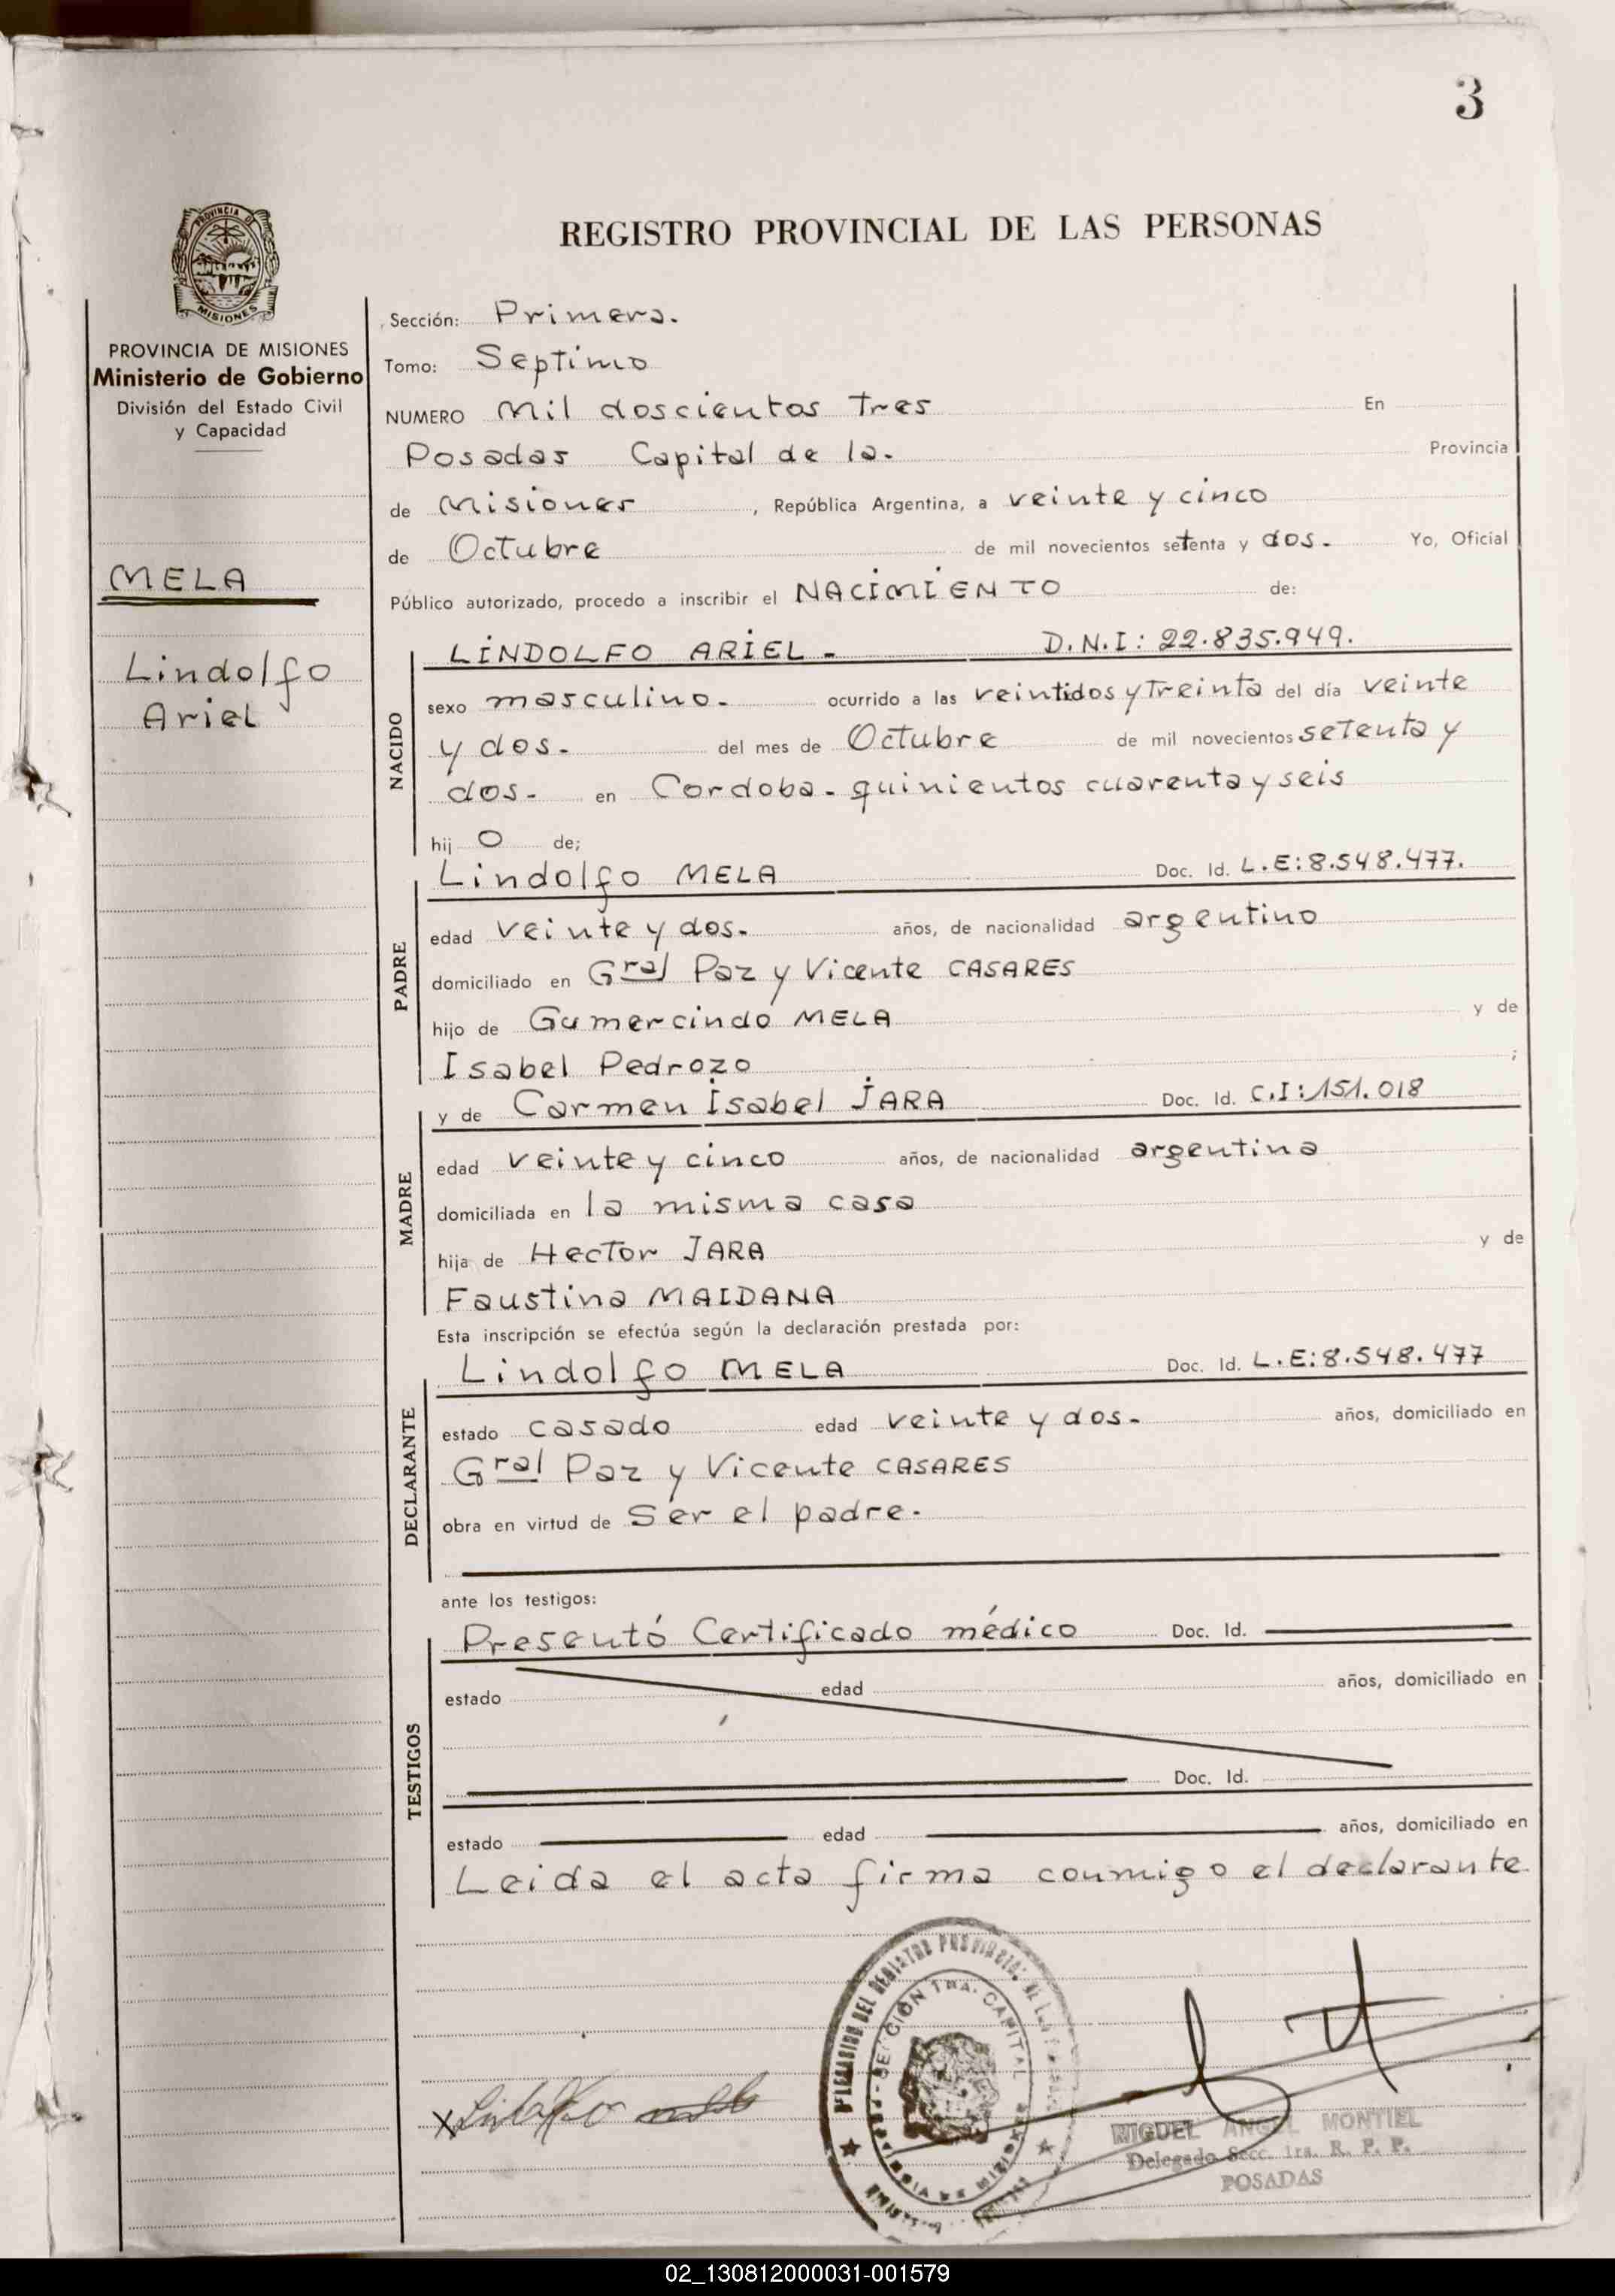 3
PROVINCIA DE
MISIONES
REGISTRO PROVINCIAL DE LAS PERSONAS
PROVINCIA DE MISIONES
Ministerio de Gobierno
División del Estado Civil
y Capacidad
MELA
Lindolfo
Ariel
Sección: Primera.
Tomo: Septimo
NUMERO Mil doscientos Tres En
Posadas Capital de la. Provincia
de Misiones, República Argentina, a veinte y cinco
de Octubre de mil novecientos setenta y dos. Yo, Oficial
Público autorizado, procedo a inscribir el NACIMIENTO de:
NACIDO
LINDOLFO ARIEL - D.N.I: 22.835.949.
sexo masculino. ocurrido a las veintidos y Treinta del día veinte
y dos. del mes de Octubre de mil novecientos setenta y
dos. en Cordoba - quinientos cuarenta y seis
hij o de;
PADRE
Lindolfo MELA Doc. Id. L.E: 8.548.477.
edad veinte y dos. años, de nacionalidad argentino
domiciliado en Gral Paz y Vicente CASARES
hijo de Gumercindo MELA y de
Isabel Pedrozo ;
MADRE
y de Carmen Isabel JARA Doc. Id. C.I: 151.018
edad veinte y cinco años, de nacionalidad argentina
domiciliada en la misma casa
hija de Hector JARA y de
Faustina MAIDANA
Esta inscripción se efectúa según la declaración prestada por:
DECLARANTE
Lindolfo MELA Doc. Id. L.E: 8.548.477
estado casado edad veinte y dos. años, domiciliado en
Gral Paz y Vicente CASARES
obra en virtud de Ser el padre.
ante los testigos:
TESTIGOS
Presentó Certificado médico Doc. Id.
estado edad años, domiciliado en
Doc. Id.
estado edad años, domiciliado en
Leida el acta firma conmigo el declarante
DEL REGISTRO PROVINCIAL DE LAS
SECCIÓN 1RA. CAPITAL
PROVINCIA DE MISIONES
X Lindolfo Mela
MIGUEL ANGEL MONTIEL
Delegado Secc. 1ra. R. P. P.
POSADAS
02_130812000031-001579